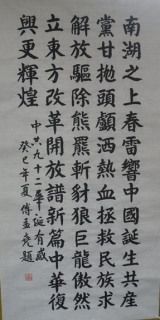 南湖之上春雷響中國誕生共産
黨甘抛頭顱洒熱血拯救民族求
解放驅除熊羆斬豺狼巨龍傲然
立東方改革開放譜新篇中華復
興更輝煌
中共九十二華誕有感
癸巳年夏傅孟堯題